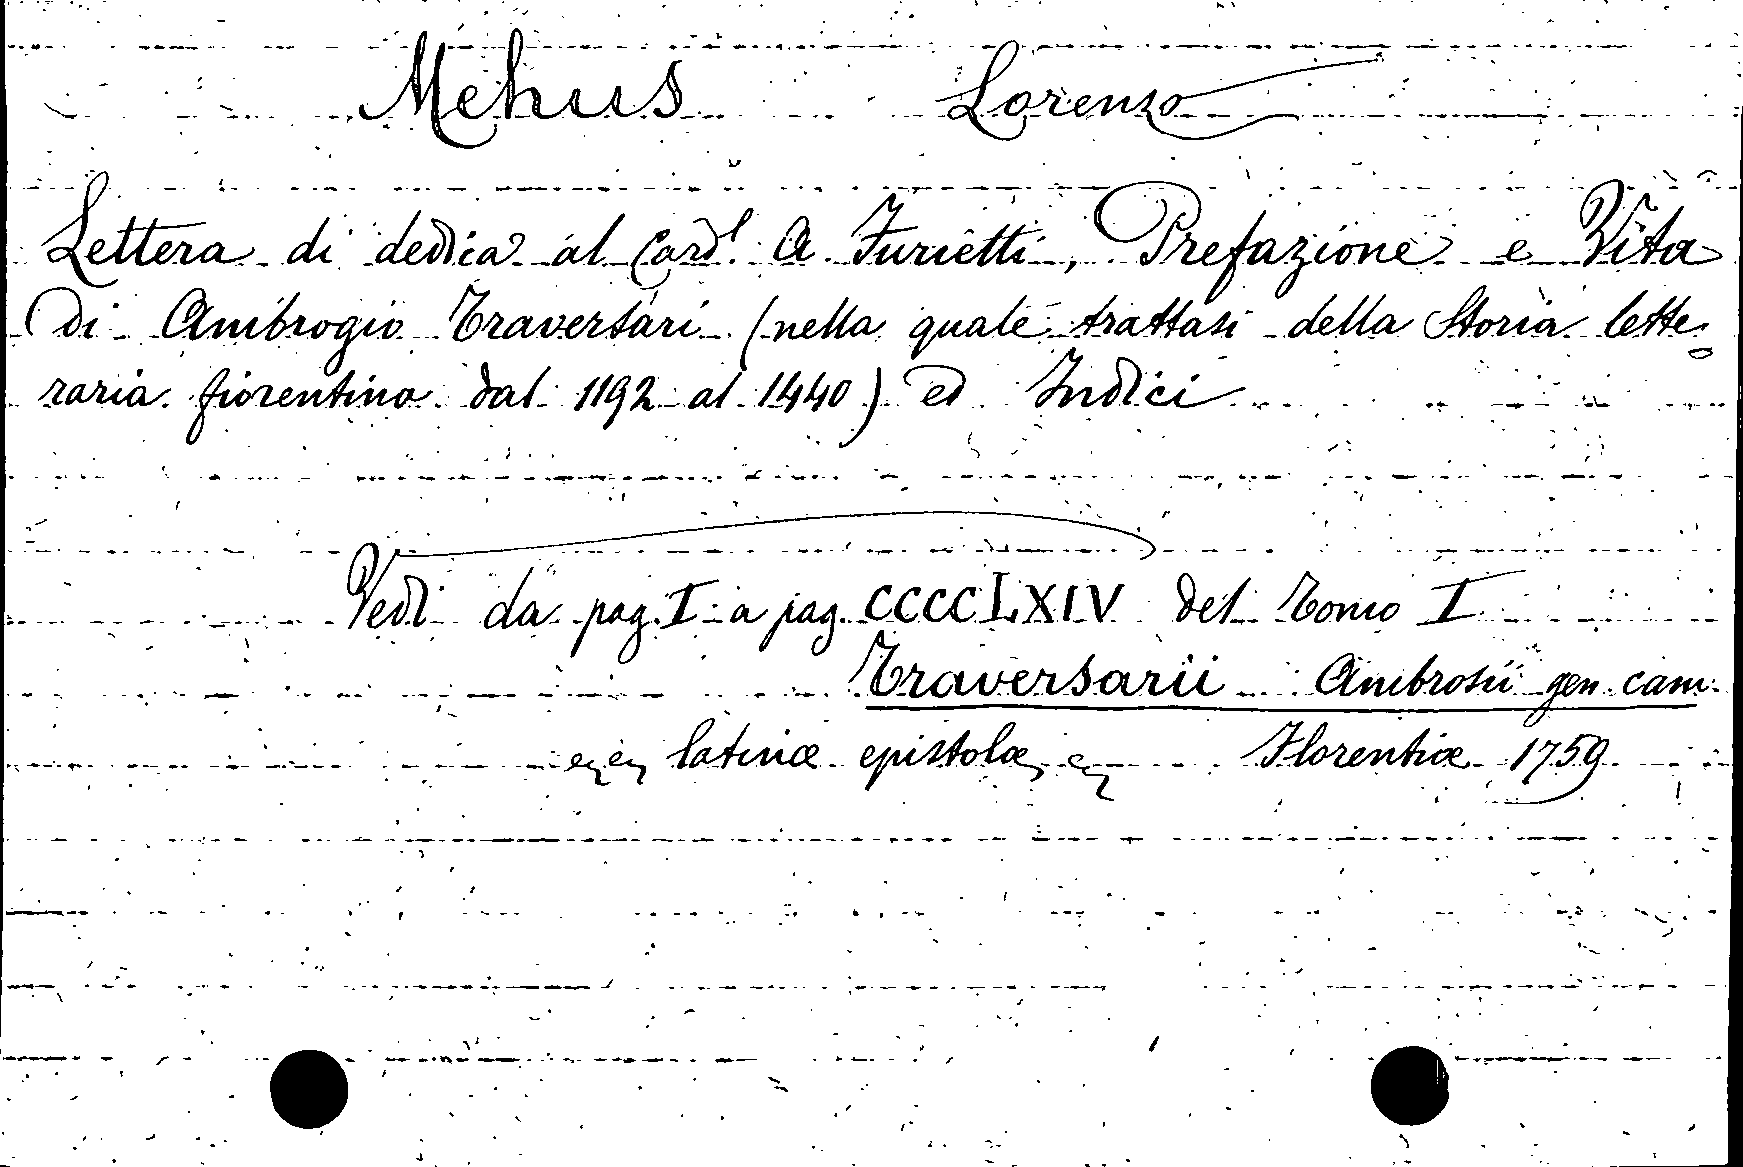 Mehus Lorenzo
Lettera di dedica al Card.l A Furietti, Prefazione e Vita
di Ambrogio Traversari (nella quale trattasi della Storia lette=
raria fiorentina dal 1192 al 1440) ed Indici
Vedi da pag. I a pag. CCCCLXIV del Tomo I
Traversarii Ambrosii gen. cam.
latinæ epistolæ, Florentiæ 1759